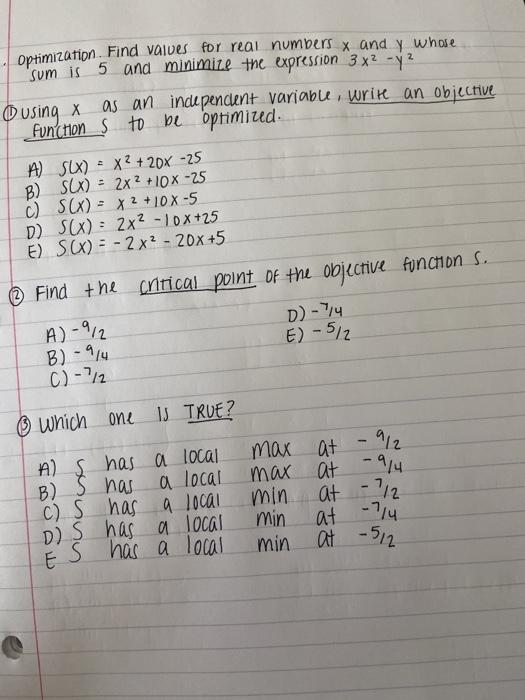 . Optimization. Find values for real numbers x and y whose
sum is 5 and minimize the expression 3x² - y²
① using x as an independent variable, write an objective
function S to be optimized.
A) S(x) = x² + 20x - 25
B) S(x) = 2x² + 10x - 25
C) S(x) = x² + 10x - 5
D) S(x) = 2x² - 10x + 25
E) S(x) = - 2x² - 20x + 5
② Find the critical point of the objective function S.
A) - 9/2
B) - 9/4
C) - 7/2
D) - 7/4
E) - 5/2
③ which one is TRUE?
A) S has a local max at - 9/2
B) S has a local max at - 9/4
C) S has a local min at - 7/2
D) S has a local min at - 7/4
E S has a local min at - 5/2